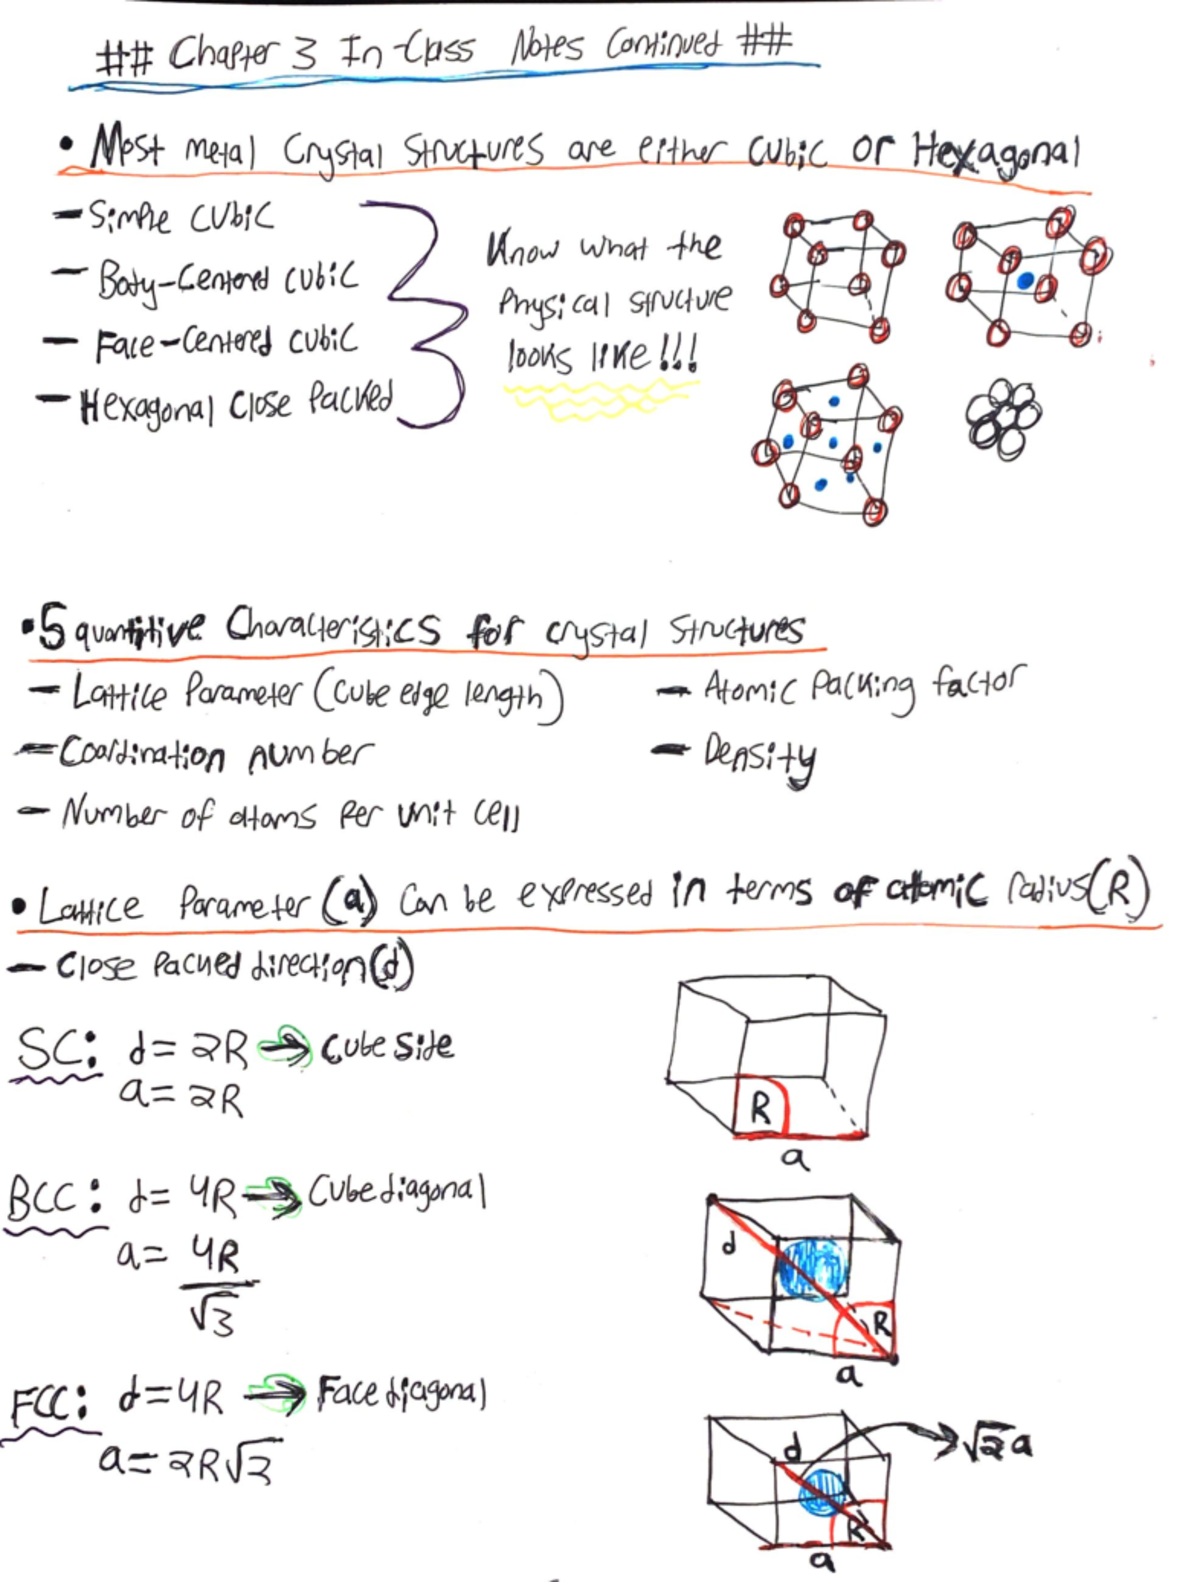 ## Chapter 3 In-Class Notes Continued ##
• Most metal Crystal Structures are either cubic or Hexagonal
- Simple cubic
- Body-Centered cubic
- Face-Centered cubic
- Hexagonal Close Packed
Know what the
Physical structure
looks like!!!
• 5 quantitive Characteristics for crystal structures
- Lattice Parameter (cube edge length)
- Coordination number
- Number of atoms Per unit cell
- Atomic Packing factor
- Density
• Lattice Parameter (a) Can be expressed in terms of atomic radius (R)
- Close Packed direction (d)
SC: d = 2R → Cube Side
a = 2R
R
a
BCC: d = 4R → Cube diagonal
a = 4R/√3
d
R
a
FCC: d = 4R → Face diagonal
a = 2R√2
d
→ √2 a
R
a